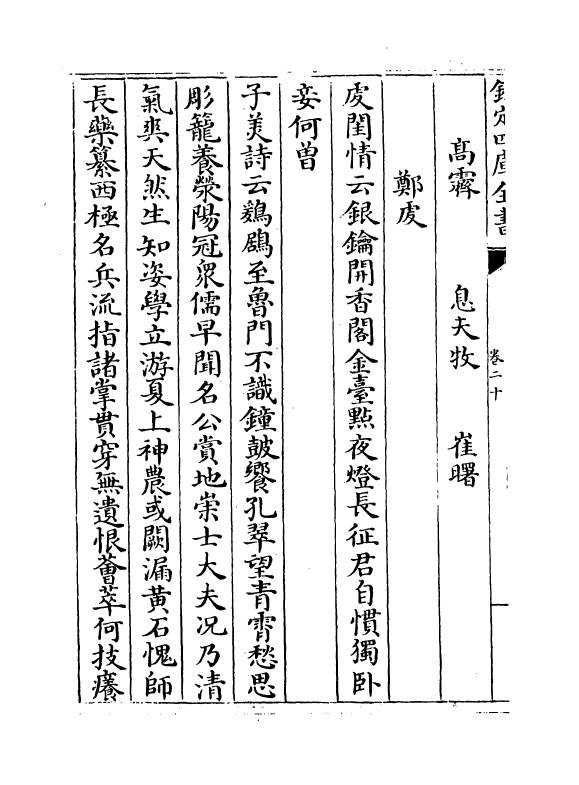 欽定四庫全書
卷二十
高霽 息夫牧 崔曙
鄭虔
虔閨情云銀鑰開香閣金臺點夜燈長征君自慣獨卧
妾何曽
子美詩云鶢鶋至魯門不識鐘鼔饗孔翠望青霄愁思
彫籠養滎陽冠衆儒早聞名公賞地崇士大夫况乃清
氣爽天然生知姿學立游夏上神農或闕漏黄石愧師
長藥纂西極名兵流指諸掌貫穿無遺恨薈萃何技癢